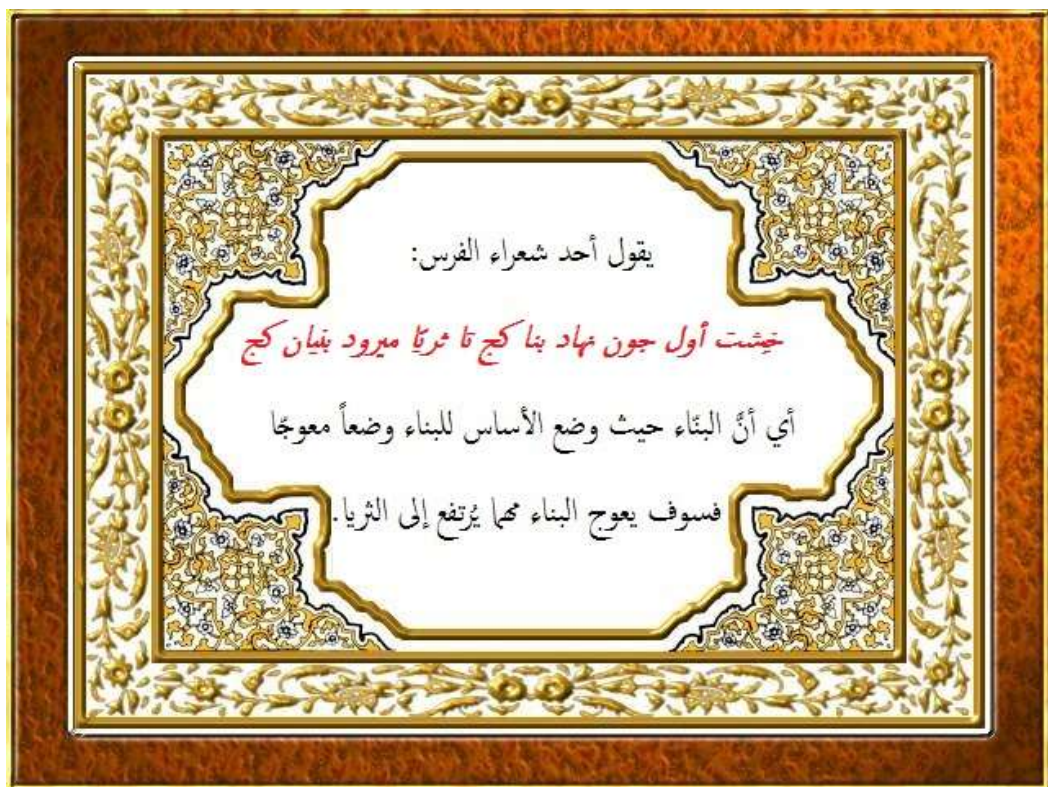 يقول أحد شعراء الفرس:
خِشت أول جون نهاد بنا کج تا ثريّا ميرود بنيان کج
أي أنَّ البنّاء حيث وضع الأساس للبناء وضعاً معوجًا
فسوف يعوج البناء مهما يُرتفع إلى الثريا.